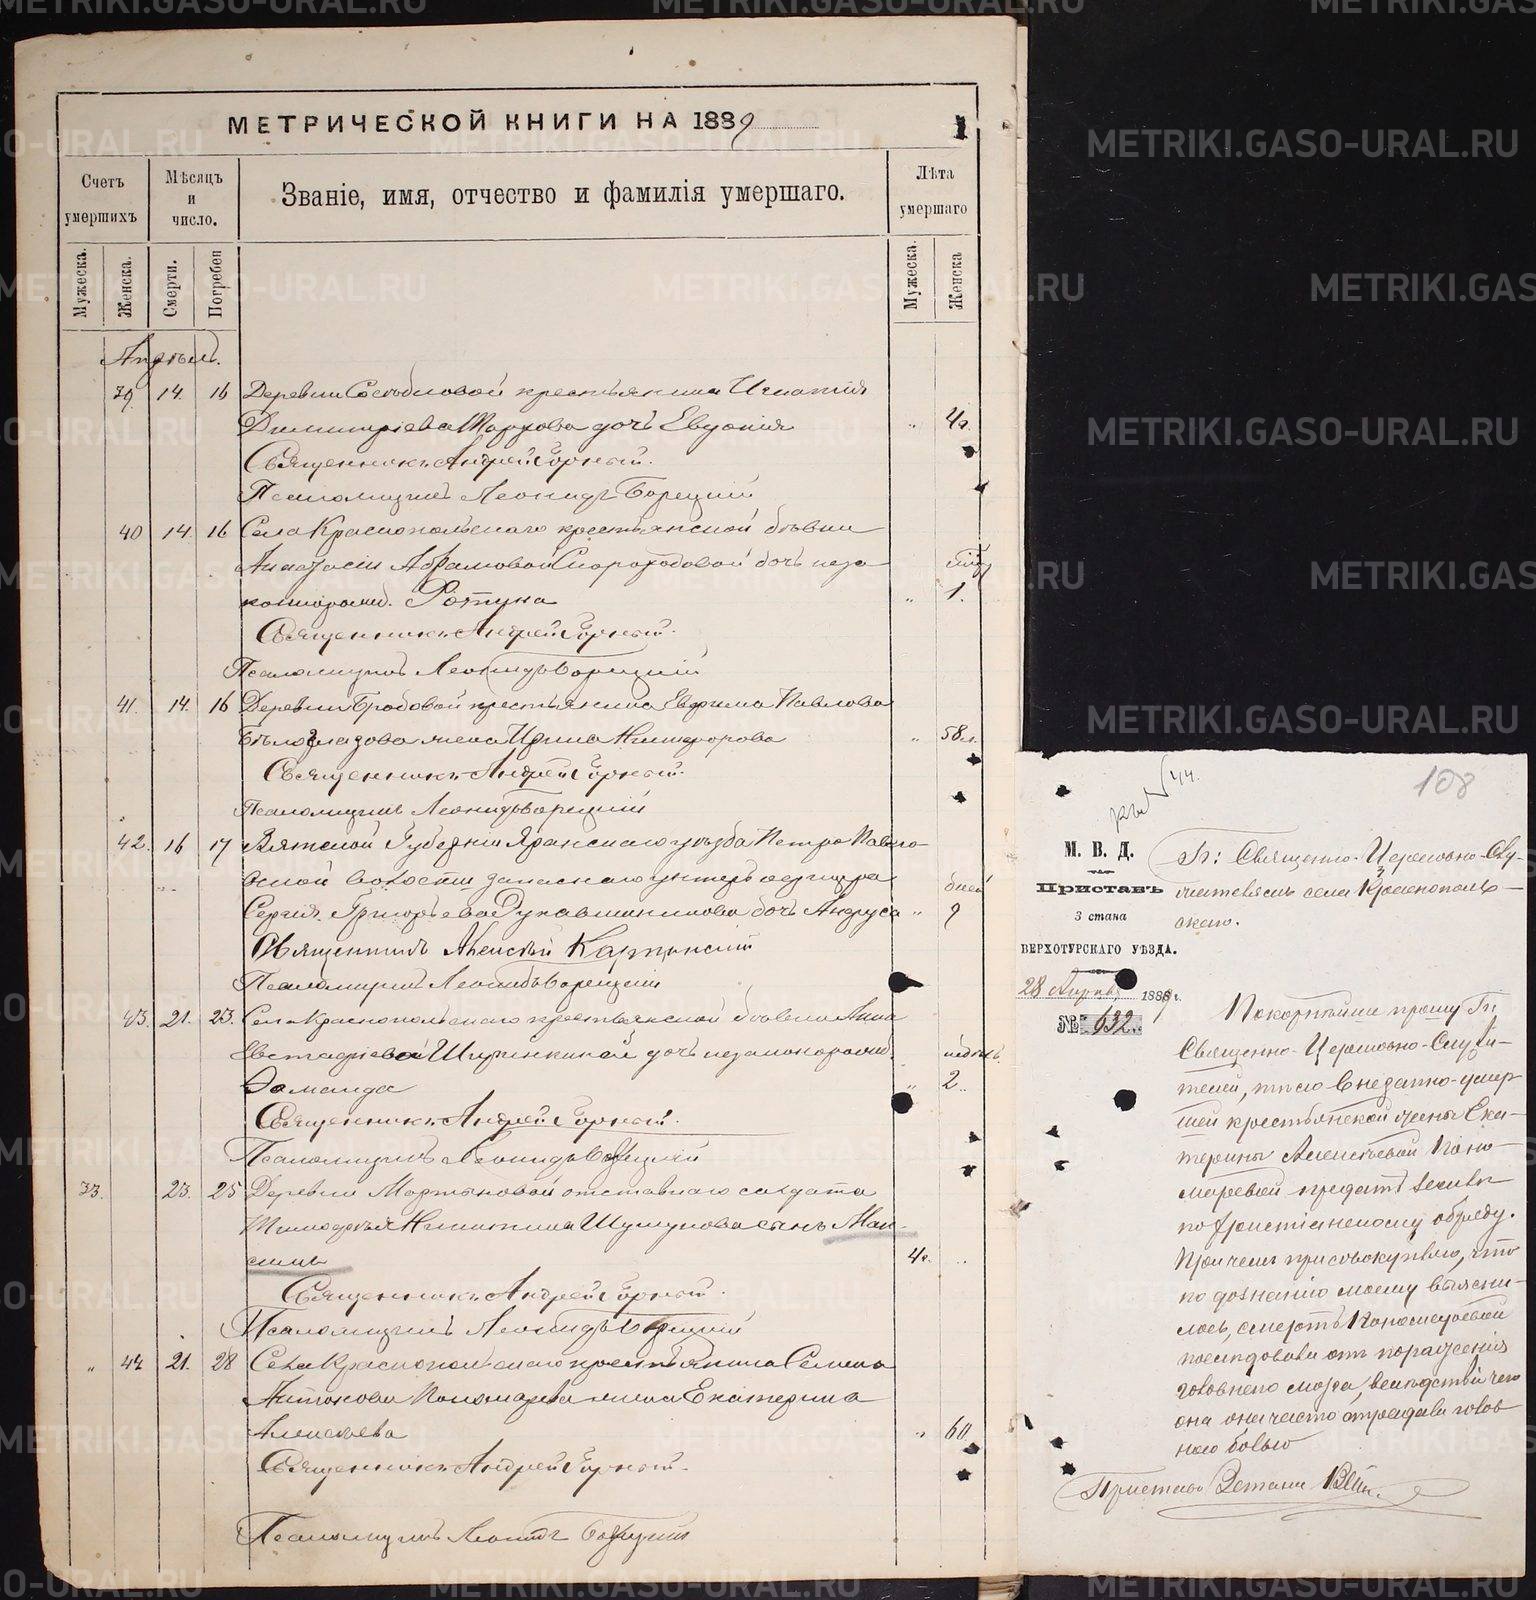 МЕТРИЧЕСКОЙ КНИГИ НА 1889
Счетъ умершихъ
Мѣсяцъ и число.
Званіе, имя, отчество и фамилія умершаго.
Лѣта умершаго
Мужеска.
Женска.
Смерти.
Погребен
Мужеска.
Женска
Апрѣль.
39 14. 16 Деревни крестьянина Игнатія
Димитріева дочь Евдокія " 4г.
Священникъ Андрей Горный.
Псаломщикъ Леонидъ Борецкій
40 14. 16 Села Краснопольскаго крестьянской дѣвки
Анастасіи Абрамовой Скороходовой дочь неза
коннорожд. " 1.
Священникъ Андрей Горный.
Псаломщикъ Леонидъ Борецкій
41. 14. 16 Деревни крестьянина Евфима Павлова
Бѣлоглазова жена Ирина Никифорова " 58 л.
Священникъ Андрей Горный.
Псаломщикъ Леонидъ Борецкій
42. 16 17 Вятской Губерніи Яранскаго уѣзда Петро Павло-
вской волости запаснаго унтеръ офицера дней
Сергія Григорьева Рукавишникова дочь " 9
Священникъ Алексѣй
Псаломщикъ Леонидъ Борецкій
43. 21. 23. Села Краснопольскаго крестьянской дѣвки Анны
Евстафіевой дочь незаконнорожд. недѣль.
" 2.
Священникъ Андрей Горный.
Псаломщикъ Леонидъ Борецкій
33. 23. 25 Деревни Мартьяновой отставнаго солдата
Никитина сынъ Мак-
симъ 4г. ..
Священникъ Андрей Горный.
Псаломщикъ Леонидъ Борецкій
" 44 21. 28 Села Краснопольскаго крестьянина Семена
Антонова Пономарева жена Екатерина
Алексѣева " 60
Священникъ Андрей Горный.
Псаломщикъ Леонидъ Борецкій
108
№ 44.
М. В. Д.
Приставъ
3 стана
ВЕРХОТУРСКАГО УѢЗДА.
28 Апрѣль 1889 г.
№ 632.
Гг: Священно-Церковно-Слу-
жителямъ села Краснополь-
скаго.
Покорнѣйше прошу Гг.
Священно-Церковно-Служи-
телей, тѣло внезапно-умер
шей крестьянской жены Ека-
терины Алексѣевой Поно-
маревой предать землѣ
по христіанскому обряду.
При чемъ присовокупляю, что
по дознанію моему выясни-
лось, смерть Пономаревой
послѣдовала отъ пораженія
головнаго мозга, вслѣдствіи чего
она часто страдала голов
ною болью
Приставъ 3 стана